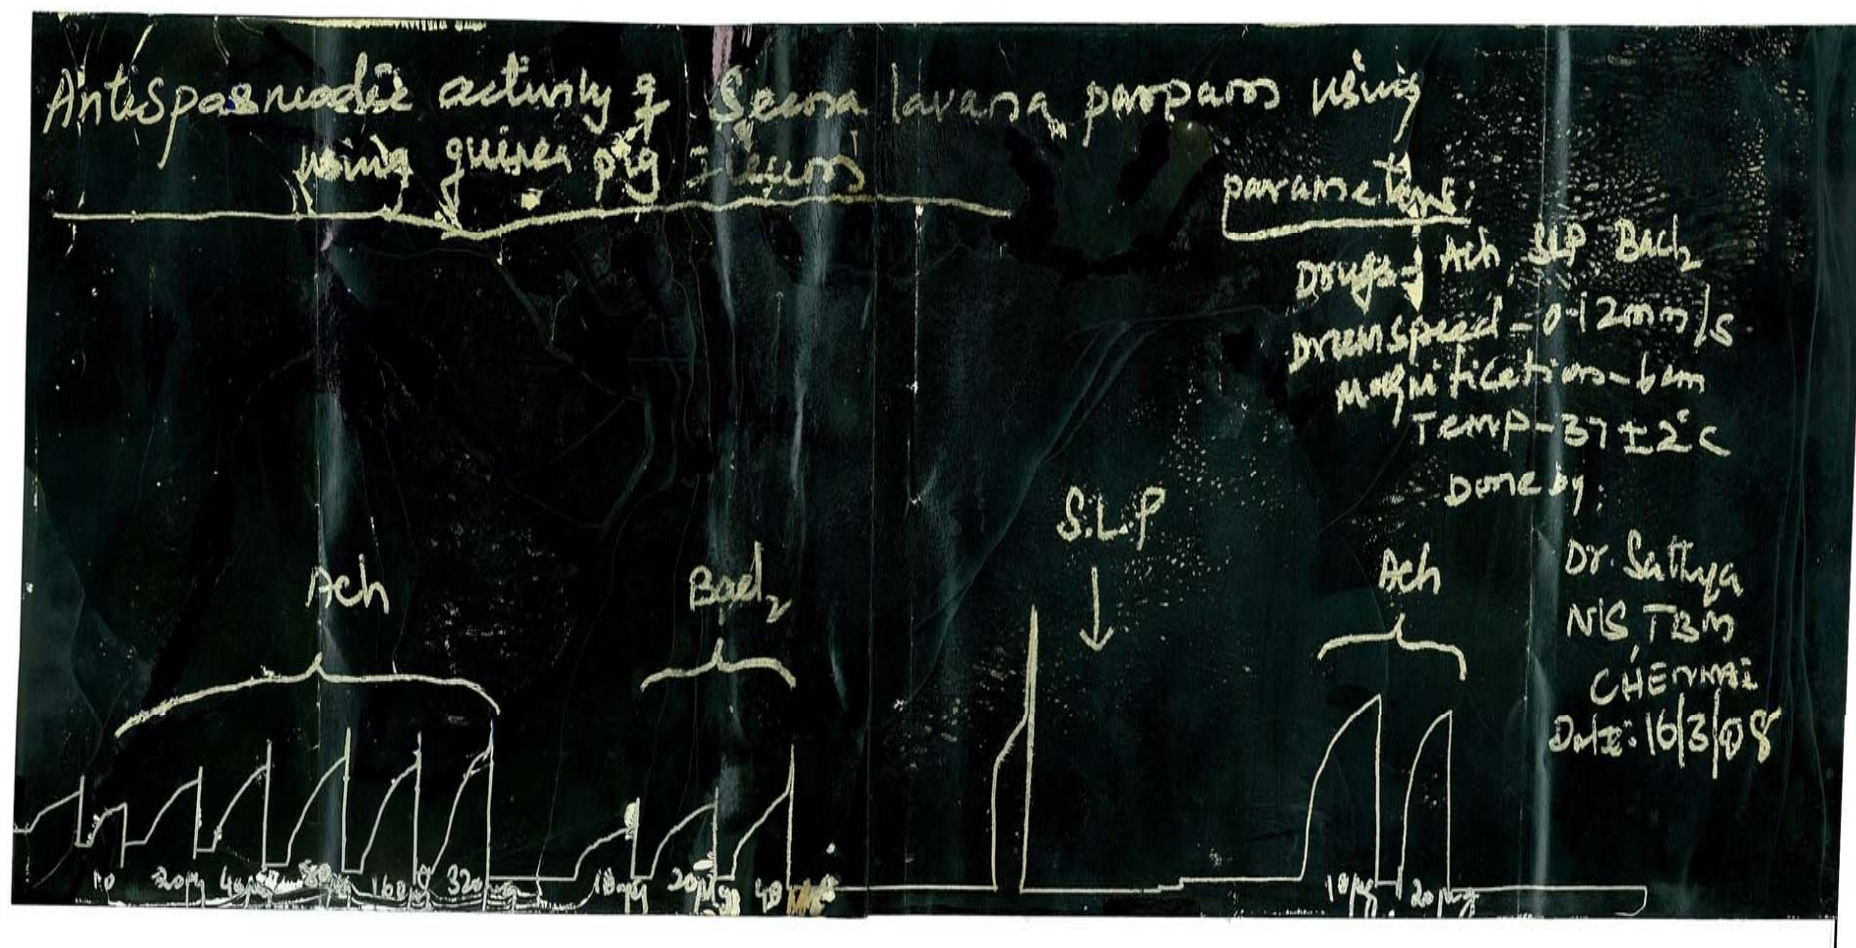 Antispasmodic activity of Seena lavana parpam using
using guinea pig Ileum
parameters:
Drugs - Ach, SLP Bacl2
Drum speed - 0.12mm/s
Magnification - 6cm
Temp - 37 ± 2°C
Done by:
Dr. Sathya
NIS, TBM
CHENNAI
Date: 16/3/08
Ach
Bacl2
S.L.P
Ach
10 20µg 40µg 80µg 160µg 320µg
10µg 20µg 40
10µg 20µg